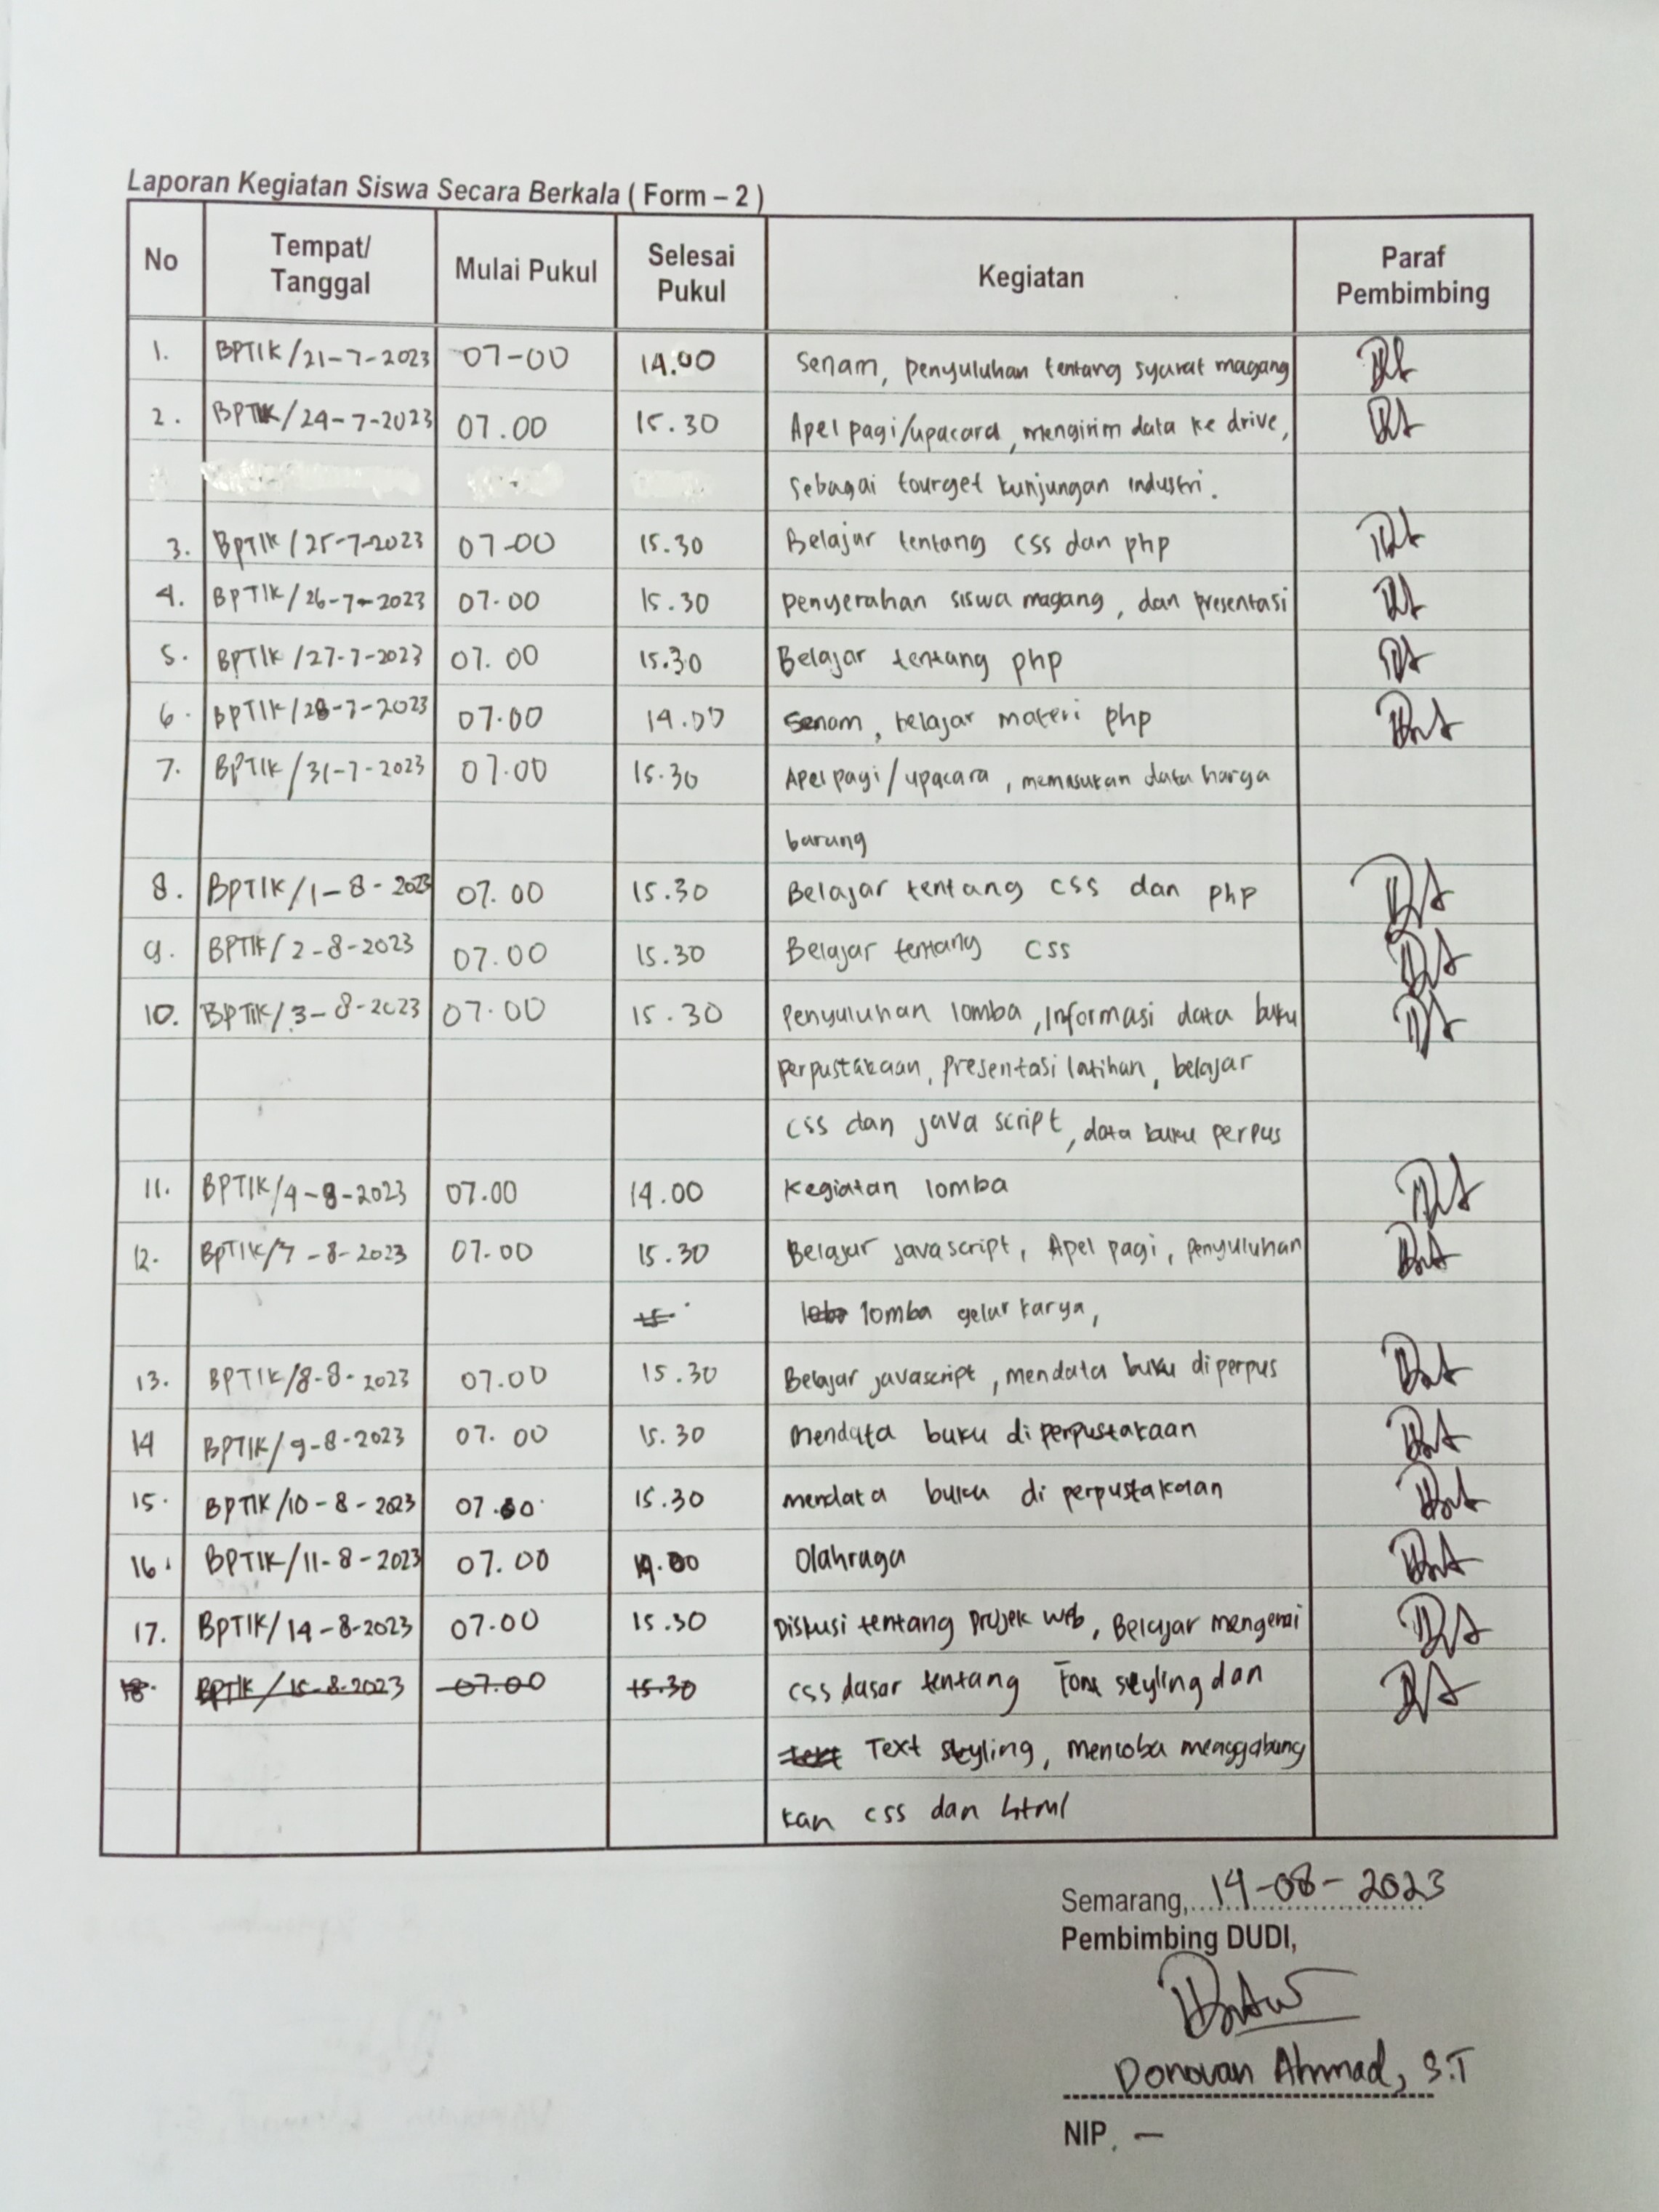 Laporan Kegiatan Siswa Secara Berkala ( Form – 2 )
No Tempat/ Tanggal Mulai Pukul Selesai Pukul Kegiatan Paraf Pembimbing
1. BPTIK/21-7-2023 07-00 14.00 Senam, penyuluhan tentang syarat magang
2. BPTIK/24-7-2023 07.00 15.30 Apel pagi/upacara, mengirim data ke drive,
sebagai tourget kunjungan industri.
3. BPTIK/25-7-2023 07-00 15.30 Belajar tentang css dan php
4. BPTIK/26-7-2023 07.00 15.30 penyerahan siswa magang, dan presentasi
5. BPTIK/27-7-2023 07.00 15.30 Belajar tentang php
6. BPTIK/28-7-2023 07.00 14.00 Senam, belajar materi php
7. BPTIK/31-7-2023 07.00 15.30 Apel pagi/upacara, memasukan data harga
barang
8. BPTIK/1-8-2023 07.00 15.30 Belajar tentang css dan php
9. BPTIK/2-8-2023 07.00 15.30 Belajar tentang css
10. BPTIK/3-8-2023 07.00 15.30 Penyuluhan lomba, Informasi data buku
perpustakaan, presentasi latihan, belajar
css dan java script, data buku perpus
11. BPTIK/4-8-2023 07.00 14.00 Kegiatan lomba
12. BPTIK/7-8-2023 07.00 15.30 Belajar javascript, Apel pagi, penyuluhan
15 lomba gelar karya,
13. BPTIK/8-8-2023 07.00 15.30 Belajar javascript, mendata buku diperpus
14 BPTIK/9-8-2023 07.00 15.30 mendata buku diperpustakaan
15. BPTIK/10-8-2023 07.00 15.30 mendata buku di perpustakaan
16. BPTIK/11-8-2023 07.00 14.00 Olahraga
17. BPTIK/14-8-2023 07.00 15.30 Diskusi tentang projek web, Belajar mengenai
18. BPTIK/15-8-2023 07.00 15.30 css dasar tentang Font styling dan
text Text styling, mencoba menggabung
kan css dan html
Semarang, 14-08-2023
Pembimbing DUDI,
Donovan Ahmad, S.T
NIP. —